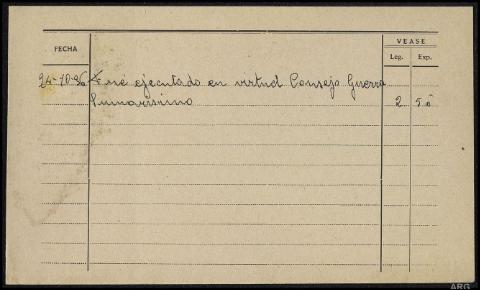 FECHA
VEASE
Leg. Exp.
24-10-36 Fué ejecutado en virtud Consejo Guerra
Sumarísimo 2 5
ARG